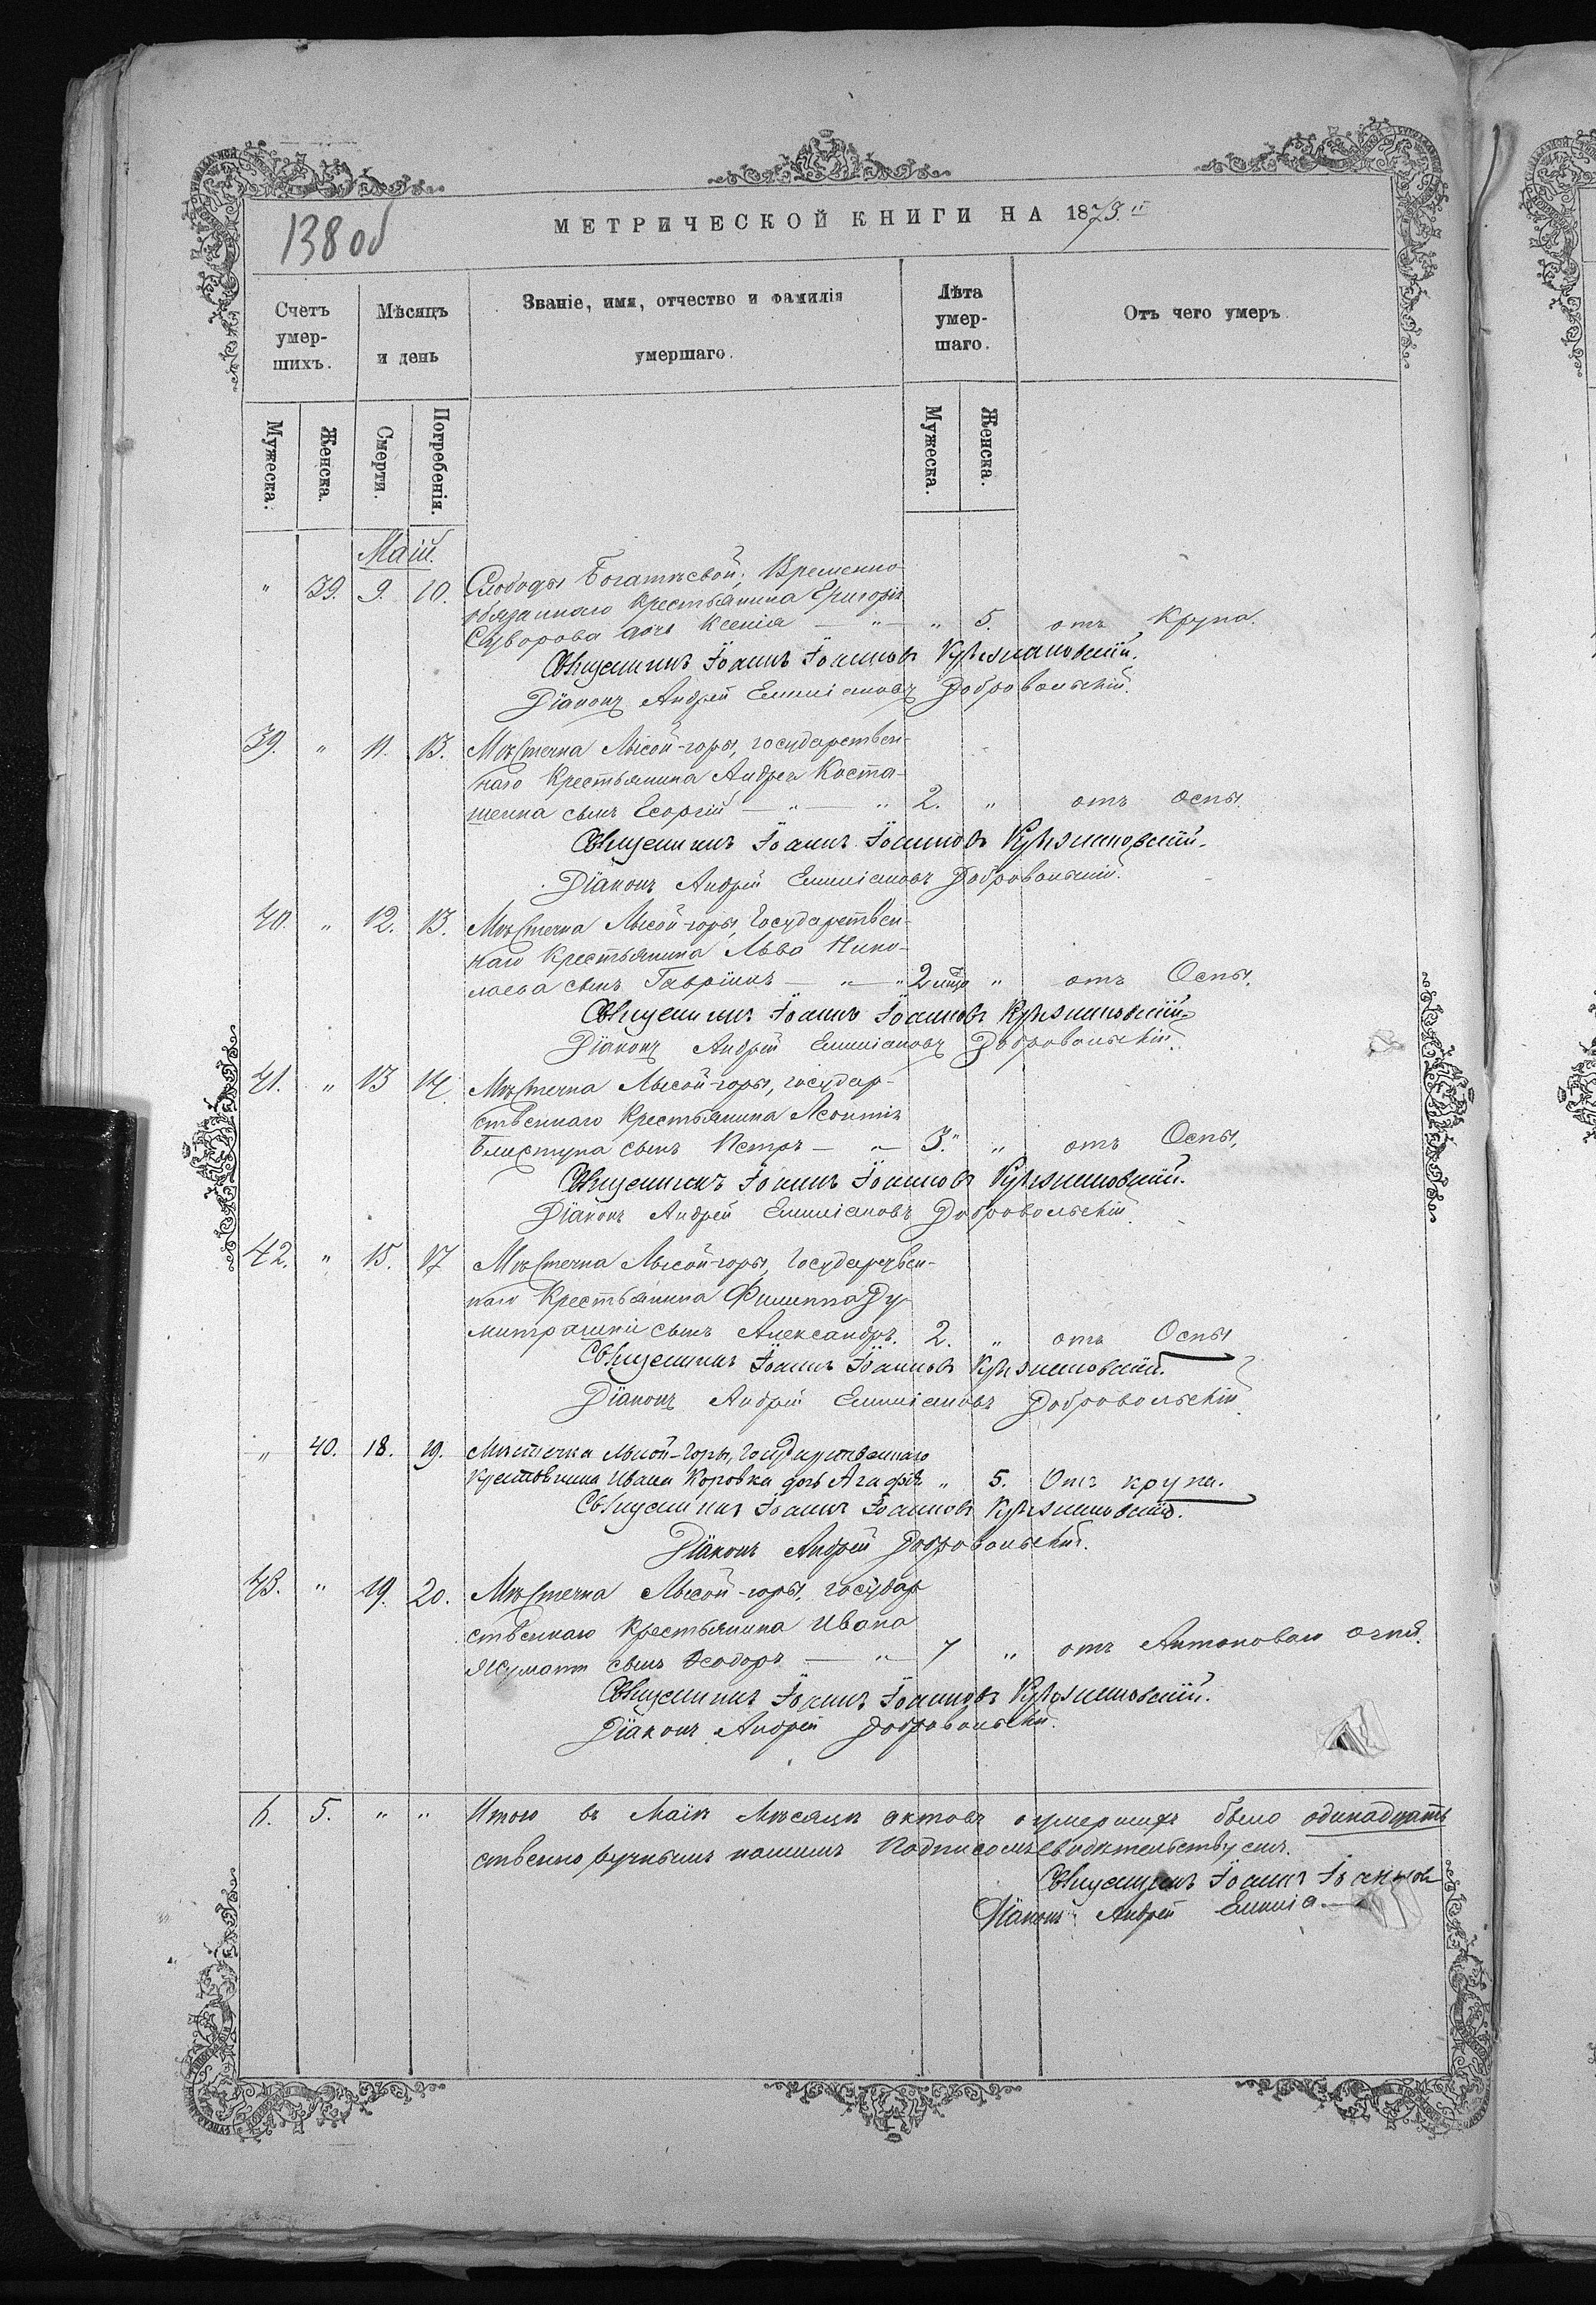 138 об
МЕТРИЧЕСКОЙ КНИГИ НА 1873.й
Счетъ умершихъ.
Мѣсяцъ и день
Званіе, имя, отчество и фамилія умершаго.
Лѣта умершаго.
Отъ чего умеръ
Мужеска.
Женска.
Смерти.
Погребенія.
Мужеска.
Женска.
Маій.
" 39. 9. 10. Слободы Богатьевой, Временно
обязаннаго Крестьянина Григорія
Суворова дочь Ксенія — " — " 5. отъ Крупа.
Священникъ Іоаннъ Іоанновъ
Діаконъ Андрей Емиліановъ Добровольскій.
39. " 11. 13. Мѣстечка Лысой-горы, государствен-
наго Крестьянина Андрея Коста-
шенка сынъ Георгій — " — " 2. " отъ оспы.
Священникъ Іоаннъ Іоанновъ
Діаконъ Андрей Емиліановъ Добровольскій.
40. " 12. 13. Мѣстечка Лысой-горы, Государствен-
наго Крестьянина Льва Нико-
лаева сынъ Гавріилъ — " — " 2 " отъ Оспы.
Священникъ Іоаннъ Іоанновъ
Діаконъ Андрей Емиліановъ Добровольскій.
41. " 13 14. Мѣстечка Лысой-горы, государ-
ственнаго Крестьянина Леонтія
сынъ Петръ — " — 3. " отъ Оспы.
Священникъ Іоаннъ Іоанновъ
Діаконъ Андрей Емиліановъ Добровольскій
42. " 15. 17 Мѣстечка Лысой-горы, Государствен-
наго Крестьянина Филиппа Ду
митрашки сынъ Александръ. 2. " отъ Оспы
Священникъ Іоаннъ Іоанновъ
Діаконъ Андрей Емиліановъ Добровольскій
" 40. 18. 19. Мѣстечка Лысой-Горы, Государственнаго
Крестьянина Ивана Коровка дочь Агафія " 5. Отъ крупа.
Священникъ Іоаннъ Іоанновъ
Діаконъ Андрей Добровольскій.
43. " 19. 20. Мѣстечка Лысой-горы, государ
ственнаго Крестьянина Ивана
сынъ Ѳеодоръ — " — 7 " отъ Антоноваго огня.
Священникъ Іоаннъ Іоанновъ
Діаконъ Андрей Добровольскій.
6. 5. " " Итого въ Маіѣ Мѣсяцѣ актовъ о умершихъ было одинадцать
ственноручнымъ нашимъ Подписомъ свидѣтельствуемъ.
Священникъ Іоаннъ Іоанновъ
Діаконъ Андрей Емиліа